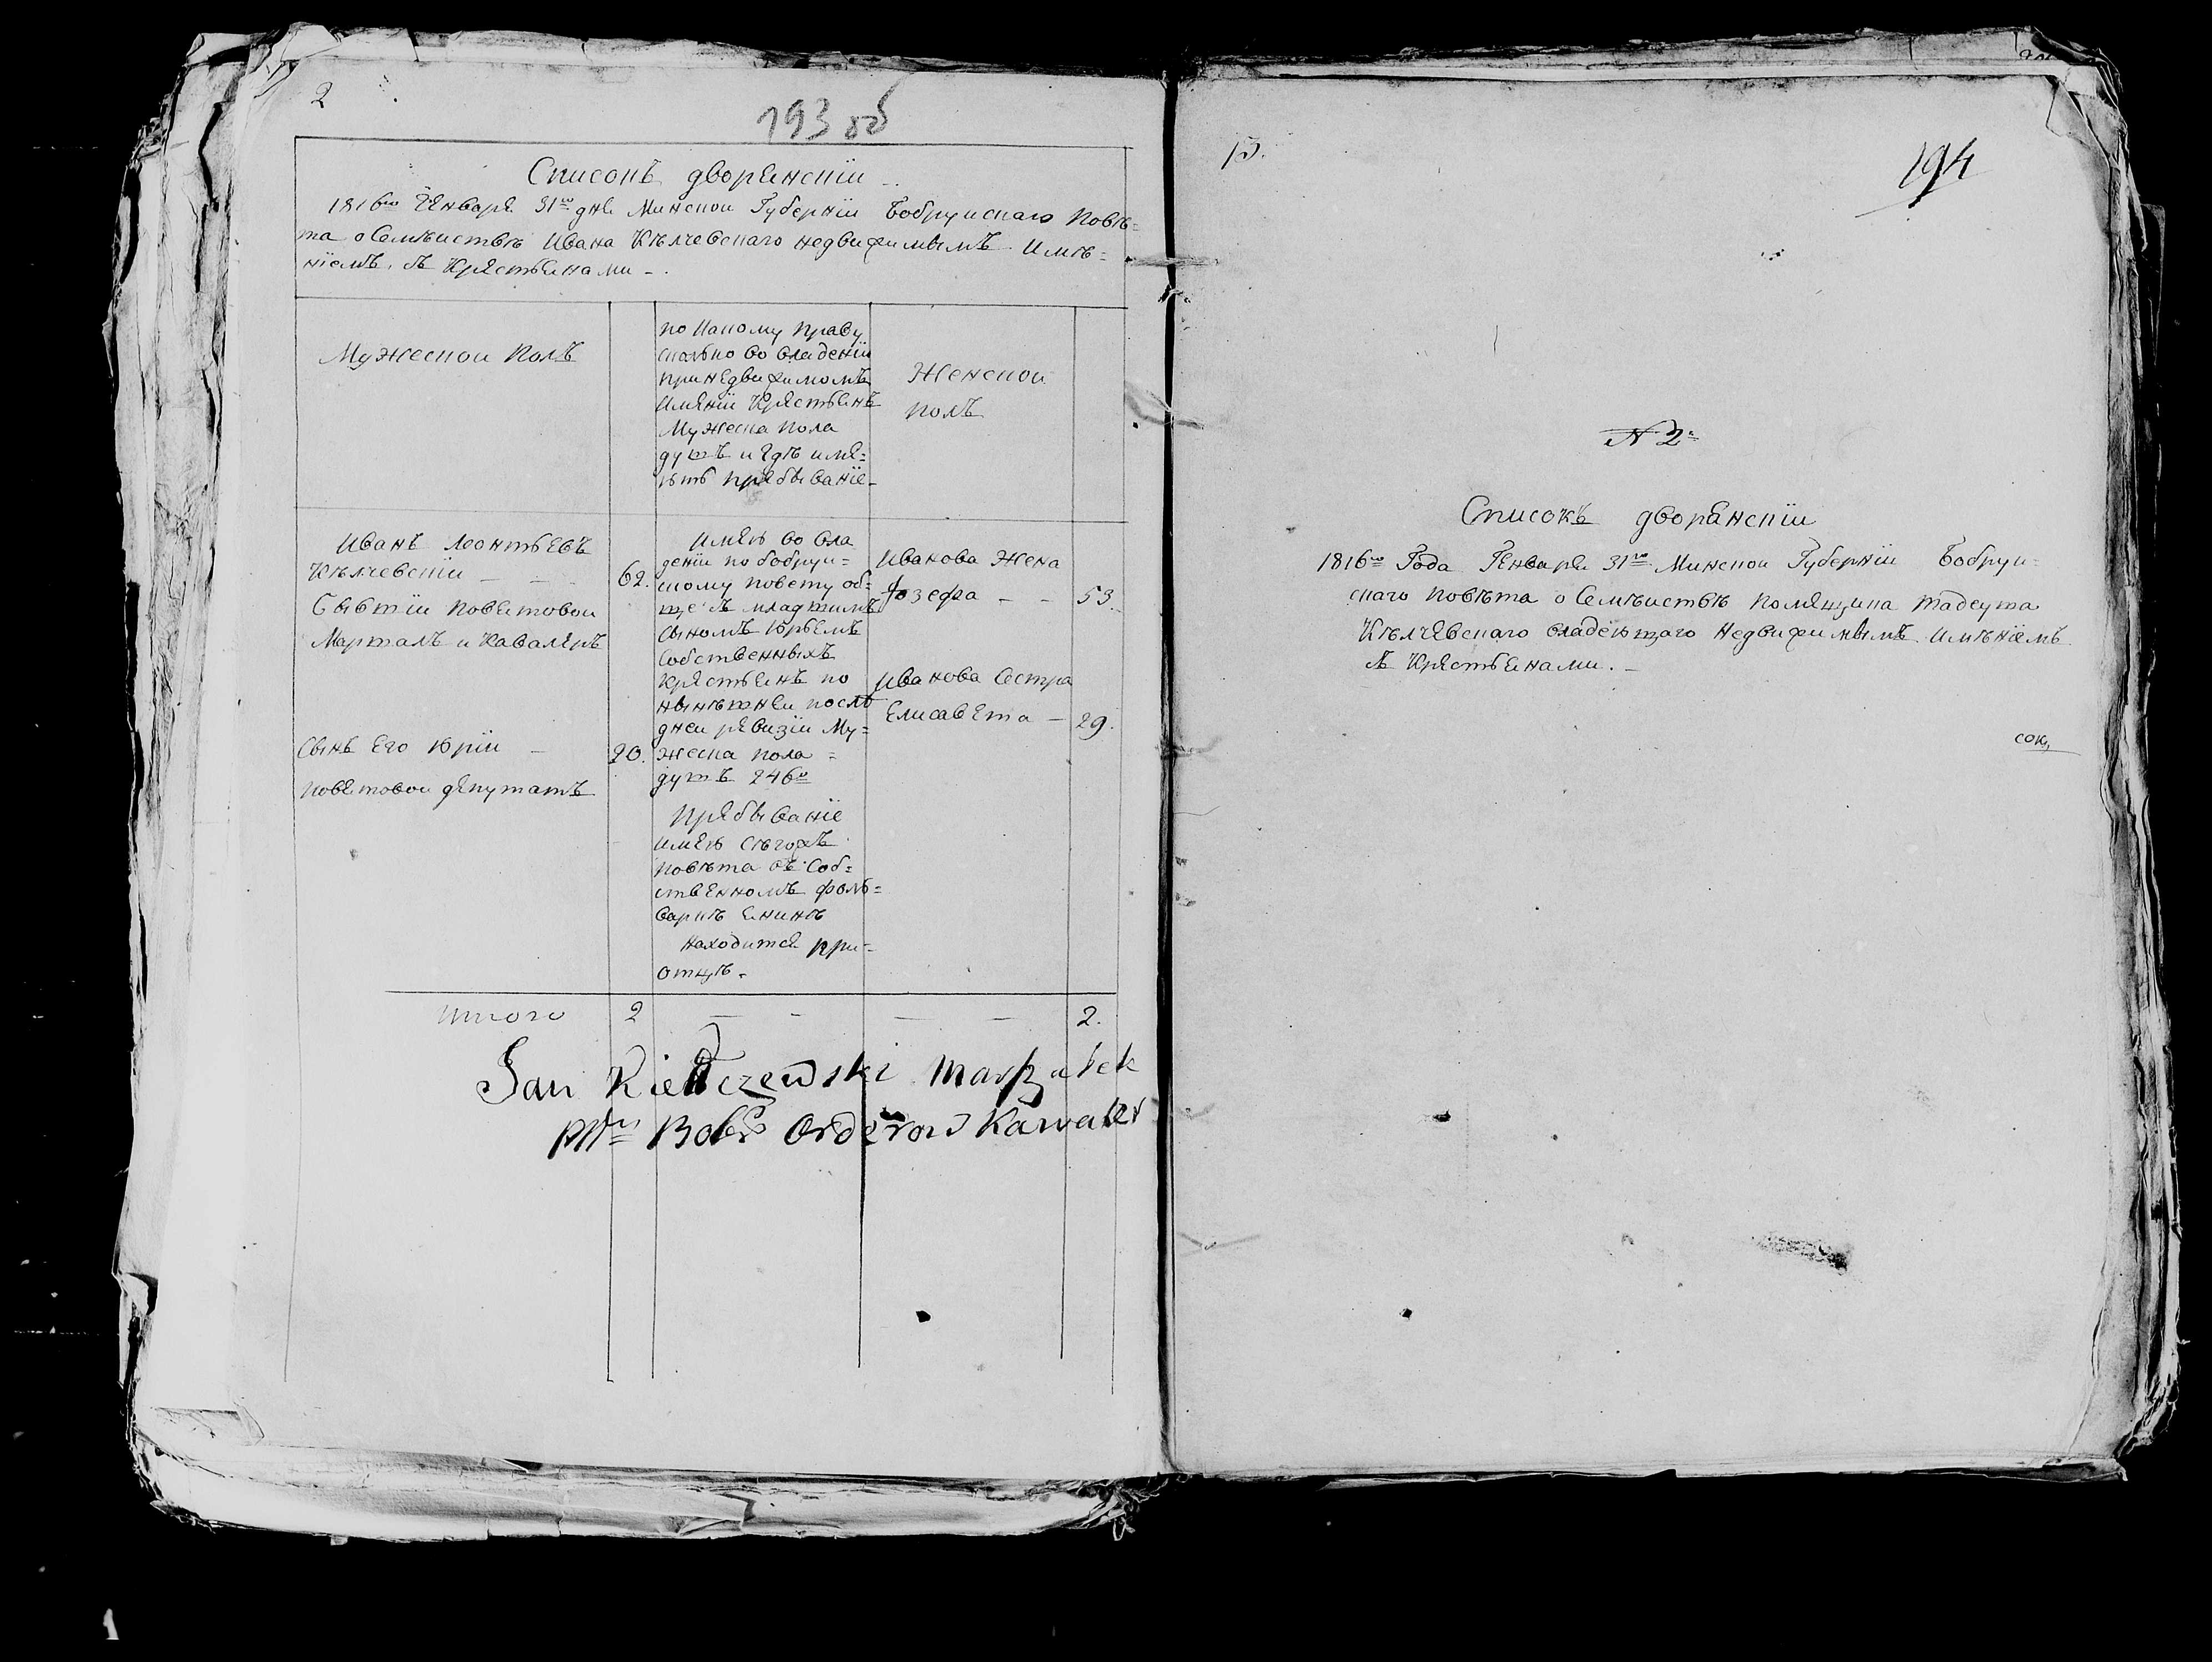 2
193 об
Списокъ дворянскiи
1816го Генваря 31го дня Минскои Губернiи Бобруискаго Повѣ=
та о Семѣиствѣ Ивана Кѣлчевскаго недвижимымъ Имѣ=
нiемъ, съ Крястьянами -
Мужескои Полъ
по Какому праву
сколько во владенiи
принедвижимомъ
Имянiи Крястьянъ
Мужеска пола
душъ и гдѣ имя=
ютъ прябыванiе
Женскои
полъ
Иванъ Леонтьевъ
Кѣлчевскiи
Бывшiи Поветовои
Маршалъ и Кавалеръ
62.
Сынъ Его Юрiи
Поветовои дяпутатъ
20.
Имяю во вла
денiи по бобруи=
скому повету об=
ще съ младшимъ
сыномъ Юрьемъ
Собственныхъ
крястьянъ по
нынѣшнеи послѣ
днеи рявизiи Му=
жеска пола =
душъ 246ю
Прябыванiе
имяю сѣгожъ
повѣта въ Соб=
ственномъ фоль=
варкѣ
Находится при=
отцѣ.
Иванова Жена
Юзефа 53.
Иванова Сестра
Елисавета 29.
Итого 2 2.
Jan Kiełczewski Marszałek
Ptu Bobr Orderow Kawaler
194
N 2
Списокъ дворянскiи
1816го Года Генваря 31го Минскои Губернiи Бобруи=
скаго Повѣта о Семѣиствѣ помящика Тадеуша
Кѣлчевскаго владеющаго Недвижимымъ Имѣнiемъ
съ Крястьянами. -